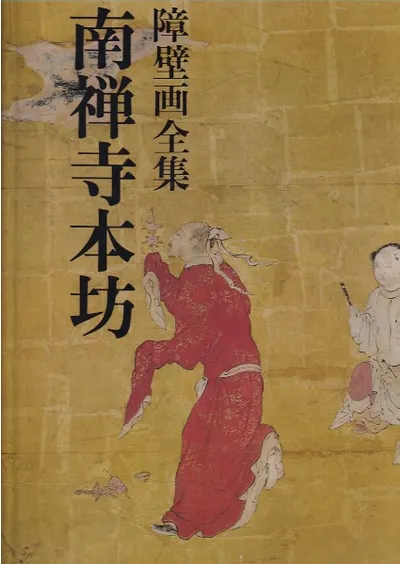 障壁画全集
南禅寺本坊